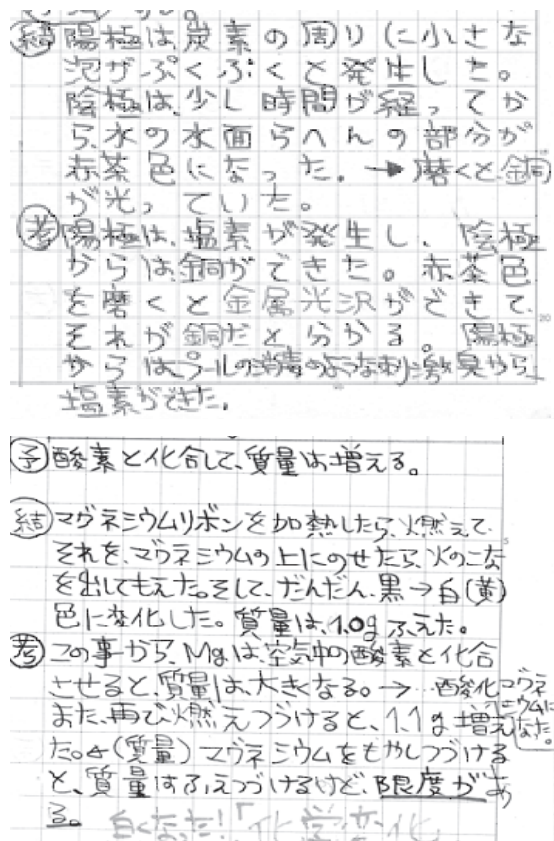 結 陽極は、炭素の周りに小さな
泡がぷくぷくと発生した。
陰極は、少し時間が経ってか
ら、水の水面らへんの部分が
赤茶色になった。→磨くと、銅
が光っていた。
考 陽極は、塩素が発生し、陰極
からは、銅ができた。赤茶色
を磨くと金属光沢ができて、
それが銅だと分かる。陽極
からは、プールの消毒のような刺激臭から、
塩素ができた。
予 酸素と化合して、質量は増える。
結 マグネシウムリボンを加熱したら、燃えて、
それを、マグネシウムの上にのせたら、火のこな
を出してもえた。そして、だんだん、黒→白(黄)
色に変化した。質量は、1.0gふえた。
考 この事から、Mgは、空気中の酸素と化合
させると、質量は、大きくなる。→酸化マグネ
シウムに
なった。
また、再び燃えつづけると、1.1g増え
た。(質量)マグネシウムをもやしつづける
と、質量はふえつづけるけど、限度があ
る。
白くなった!「化学変化」